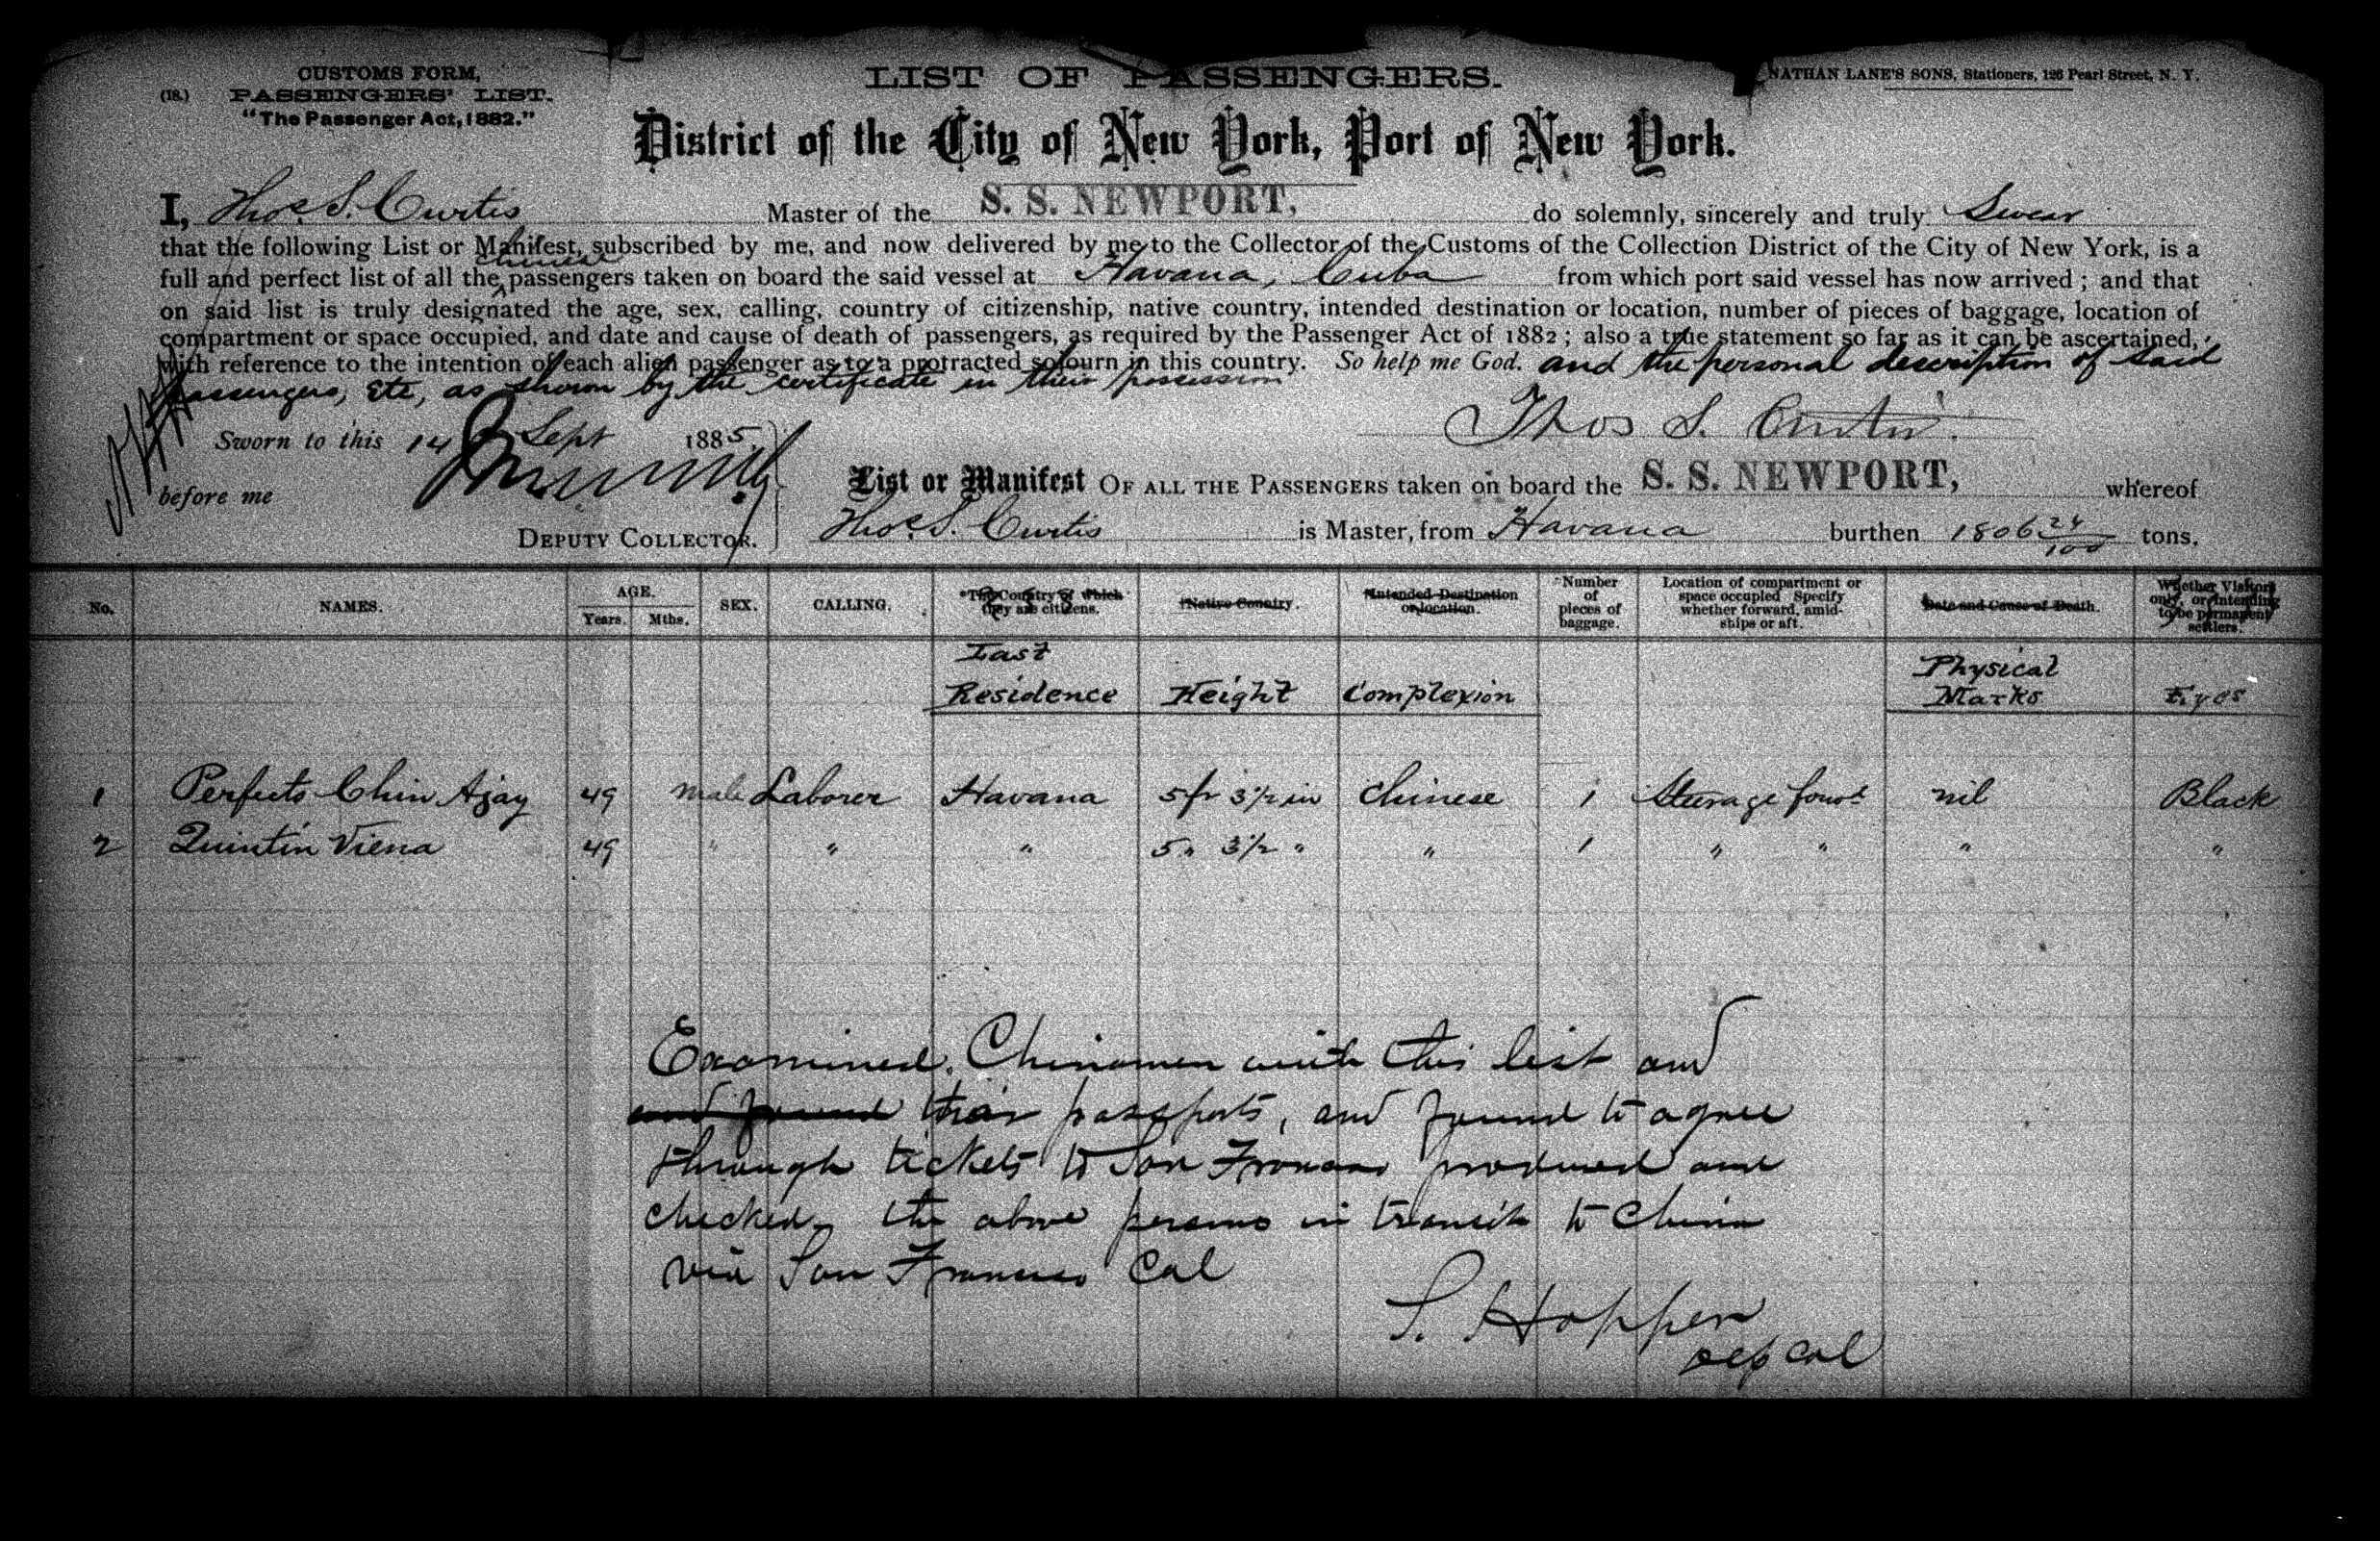 CUSTOMS FORM,
(18.) PASSENGERS' LIST.
"The Passenger Act, 1882."
LIST OF PASSENGERS.
NATHAN LANE'S SONS, Stationers, 126 Pearl Street, N. Y.
District of the City of New York, Port of New York.
I, Thos. S. Curtis Master of the S. S. NEWPORT, do solemnly, sincerely and truly Swear
that the following List or Manifest, subscribed by me, and now delivered by me to the Collector of the Customs of the Collection District of the City of New York, is a
Chinese
full and perfect list of all the passengers taken on board the said vessel at Havana, Cuba from which port said vessel has now arrived; and that
on said list is truly designated the age, sex, calling, country of citizenship, native country, intended destination or location, number of pieces of baggage, location of
compartment or space occupied, and date and cause of death of passengers, as required by the Passenger Act of 1882; also a true statement so far as it can be ascertained,
with reference to the intention of each alien passenger as to a protracted sojourn in this country. So help me God. and the personal description of said
passengers, etc, as shown by the certificate in their possession
Thos S. Curtis.
Sworn to this 14 Sept 1885,
before me
DEPUTY COLLECTOR.
List or Manifest OF ALL THE PASSENGERS taken on board the S. S. NEWPORT, whereof
Thos. S. Curtis is Master, from Havana burthen 1806 24/100 tons.
No. NAMES. AGE. Years. Mths. SEX. CALLING. *The Country of which they are citizens. †Native Country. Intended Destination or location. Number of pieces of baggage. Location of compartment or space occupied Specify whether forward, amidships or aft. Date and Cause of Death. Whether Visitors only, or Intending to be permanent settlers.
Last Residence Height Complexion Physical Marks Eyes
1 Perfecto Chin Ajay 49 male Laborer Havana 5 ft 3 1/2 in Chinese 1 Steerage forwd nil Black
2 Quintin Viena 49 " " " 5 " 3 1/2 " " 1 " " " "
Examined Chinamen with this list and
and found their passports, and found to agree
through tickets to San Francisco produced and
checked, the above persons in transit to China
via San Francisco Cal
S. Hopper
Dep Col